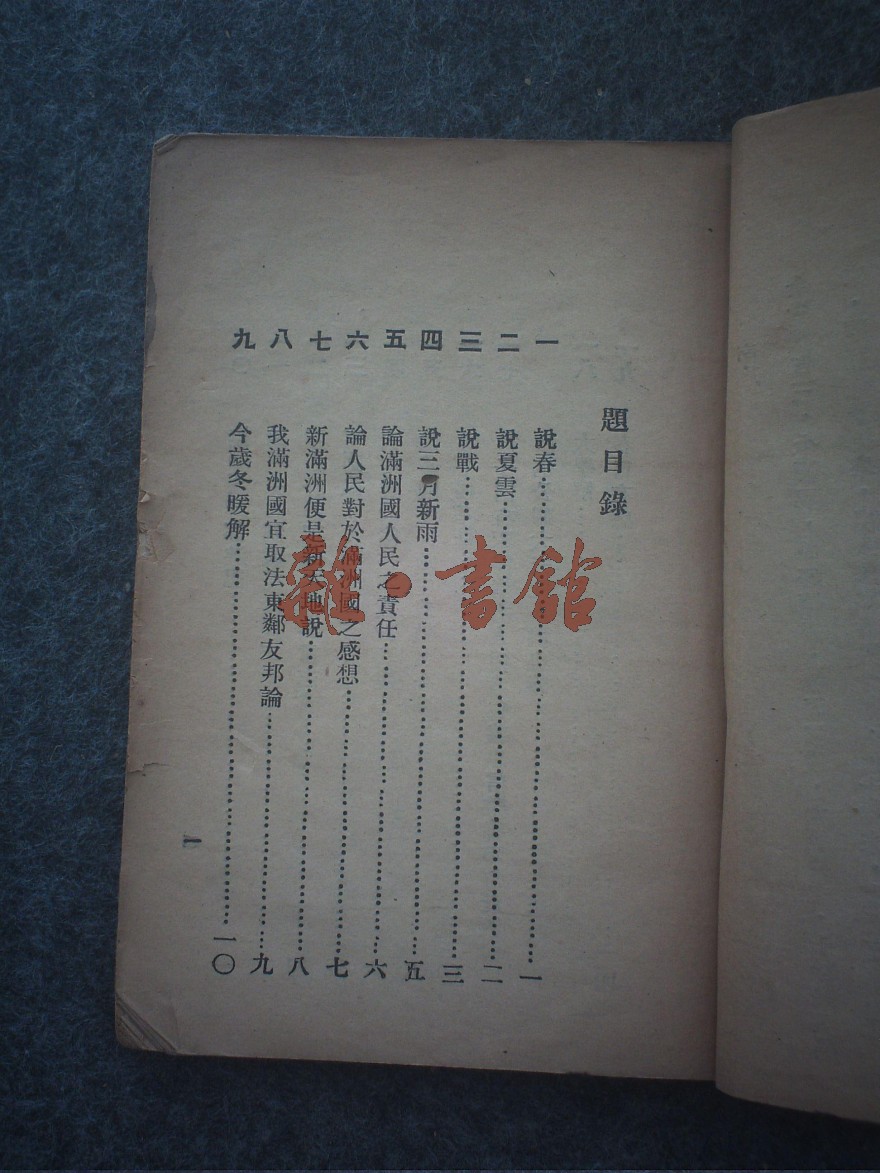 題目錄
一 說春 一
二 說夏雲 二
三 說戰 三
四 說三月新雨 五
五 論滿洲國人民之責任 六
六 論人民對於滿洲國之感想 七
七 新滿洲便是新天地說 八
八 我滿洲國宜取法東鄰友邦論 九
九 今歲冬暖解 一〇
一
書館